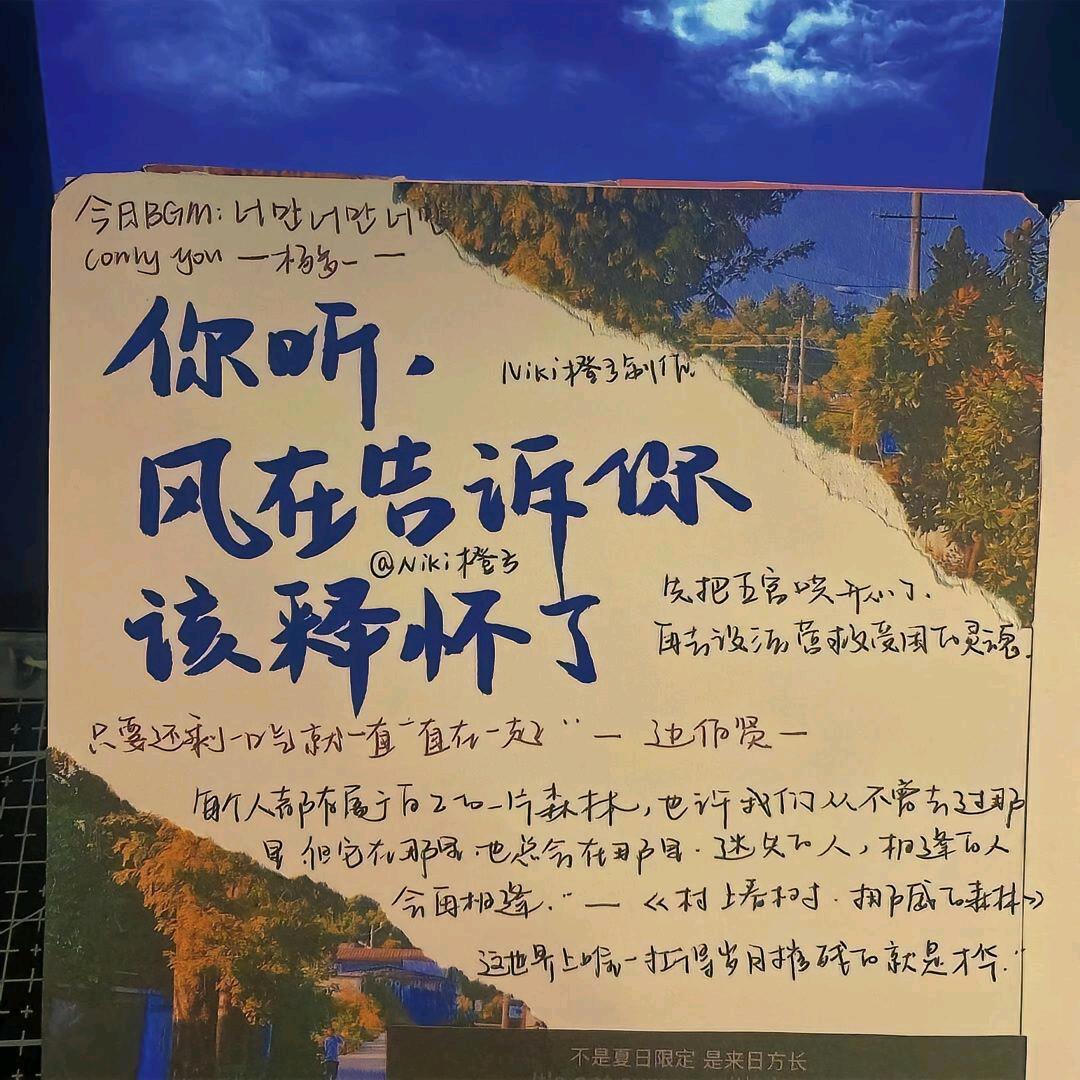 今日BGM:너만너만너만
(only you —杨多一—
你听.
Niki橙子制作
风在告诉你
@Niki橙子
该释怀了
先把五官哄开心了.
再去设法营救受困的灵魂.
只要还剩一口气就一直一直在一起” — 边伯贤 —
每个人都有属于自己的一片森林,也许我们从不曾去过那
里 但它在那里.也总会在那里.迷失的人,相逢的人
会再相逢.” — 《村上春树.挪威的森林》
这世界上唯一扛得岁月摧残的就是才华.”
不是夏日限定 是来日方长